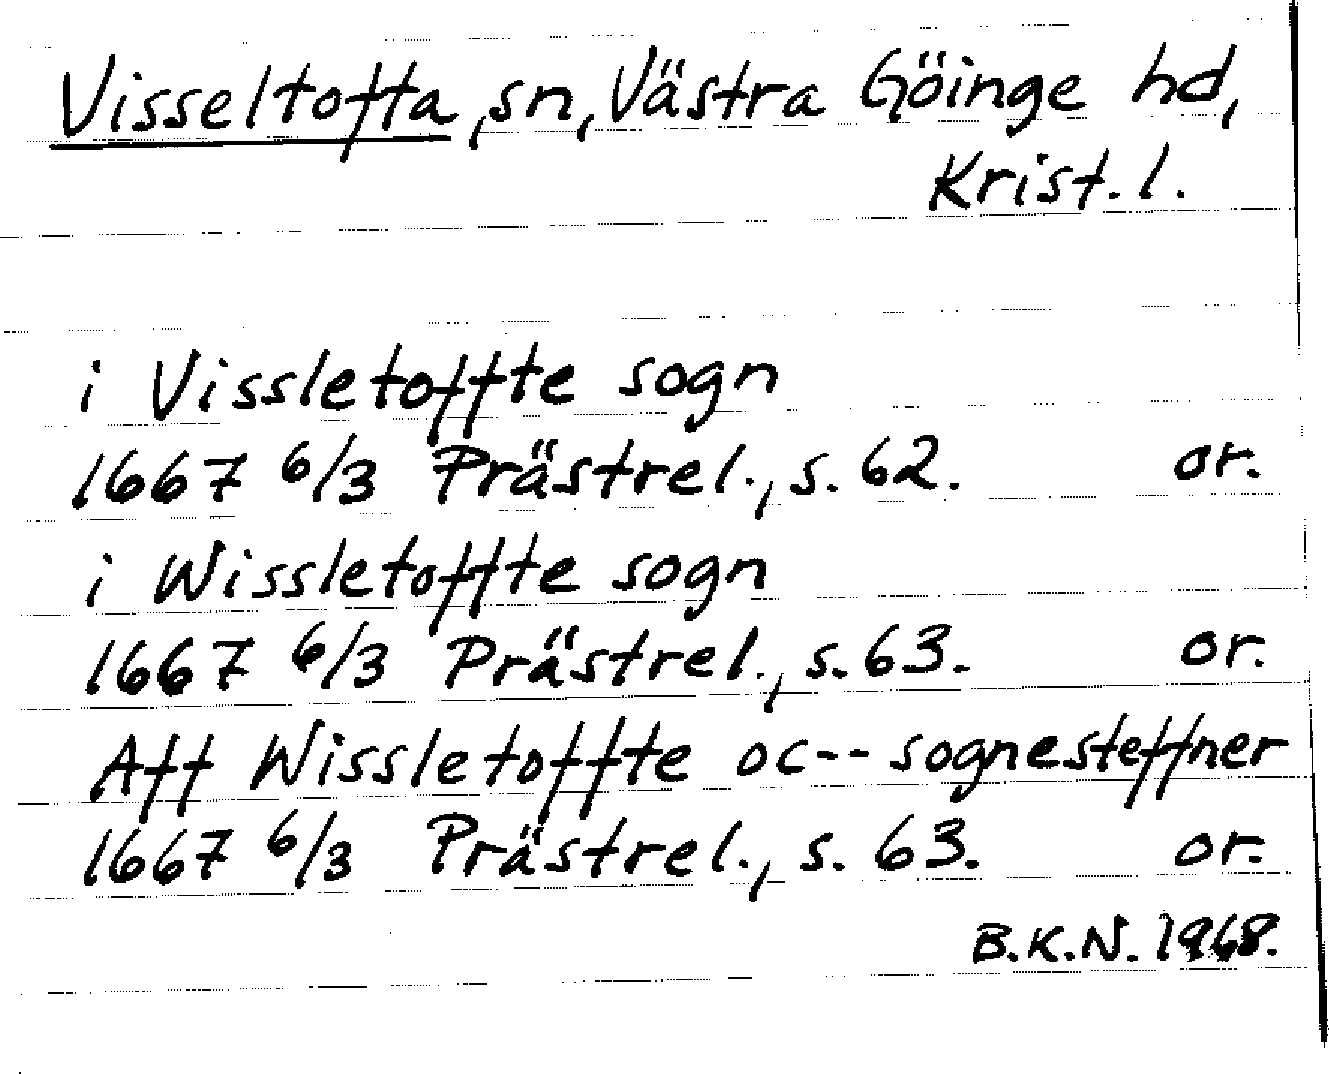 Visseltofta, sn, Västra Göinge hd,
Krist. l.
i Vissletoffte sogn
1667 6/3 Prästrel., s. 62. or.
i Wissletoffte sogn
1667 6/3 Prästrel., s. 63. or.
Aff Wissletoffte oc-- sognesteffner
1667 6/3 Prästrel., s. 63. or.
B.K.N. 1968.